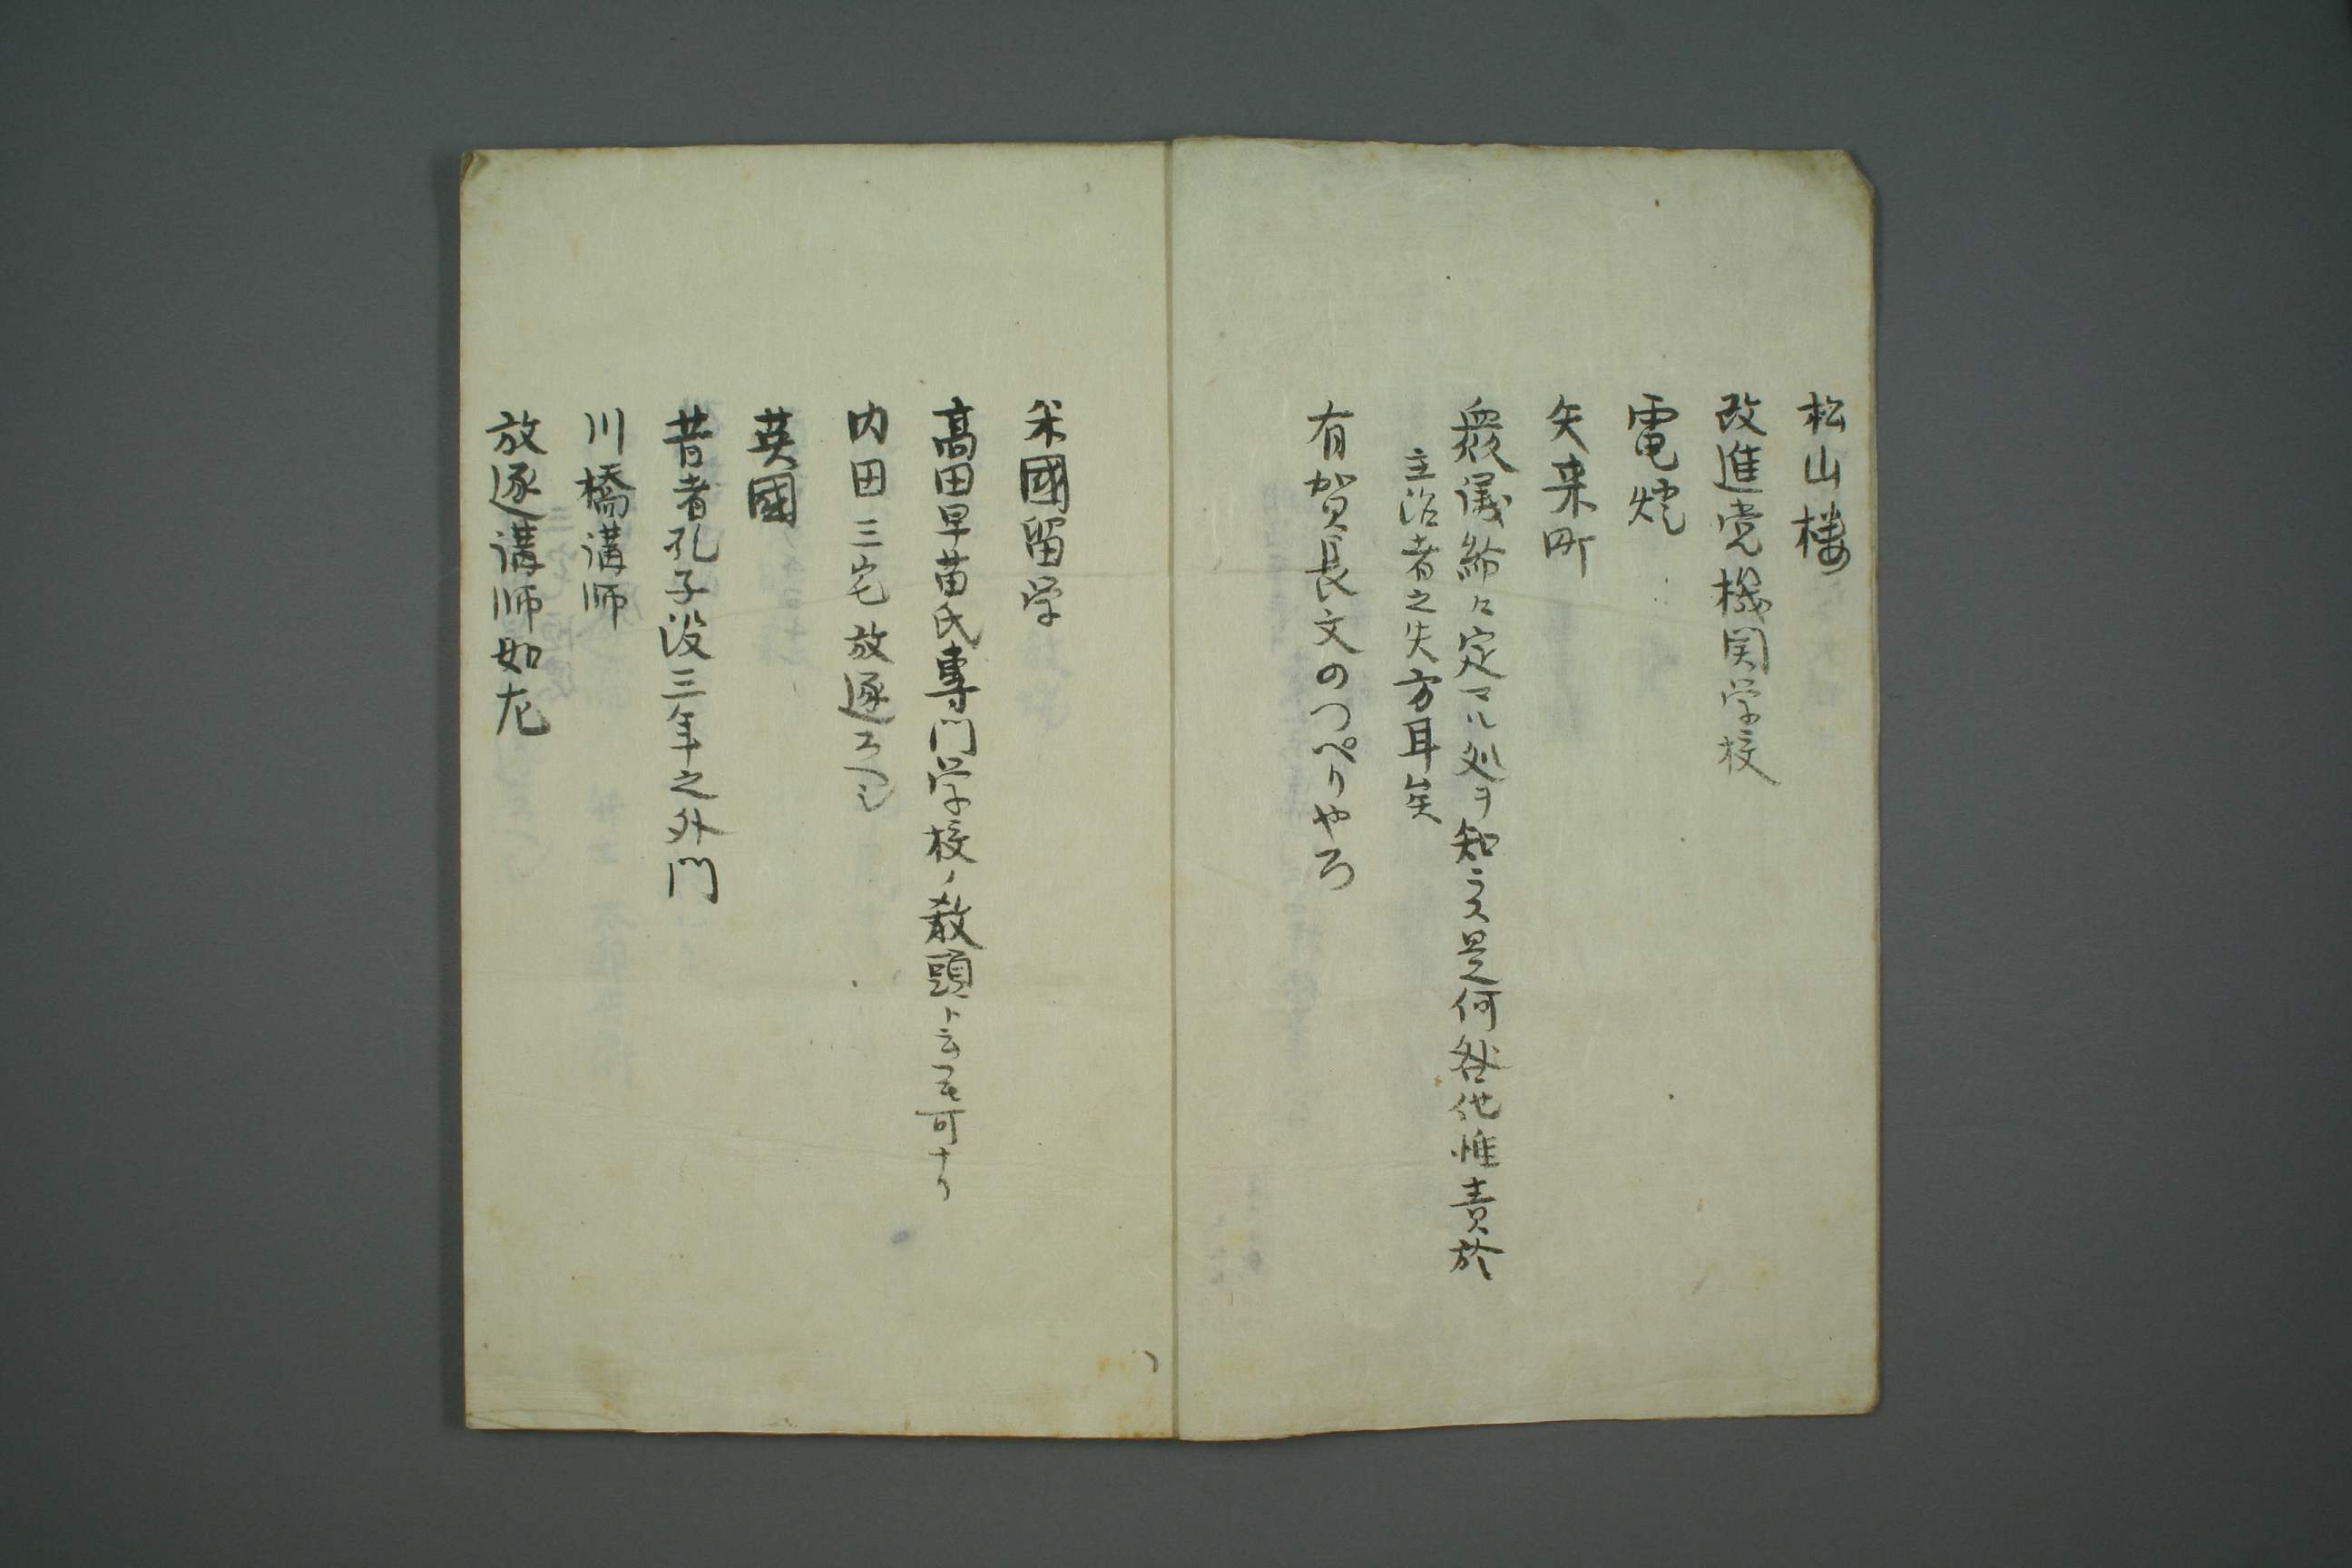 松山楼
改進党機関学校
電燈
矢来町
衆議紛々定マル処ヲ知ラス是何然他惟責於
主治者之失方耳矣
有賀長文のつぺりやろ
米國留学
高田早苗氏専門学校ノ教頭ト云モ可ナリ
内田三宅放逐
英國
昔者孔子没三年之外門
川橋講师
放逐講师如左